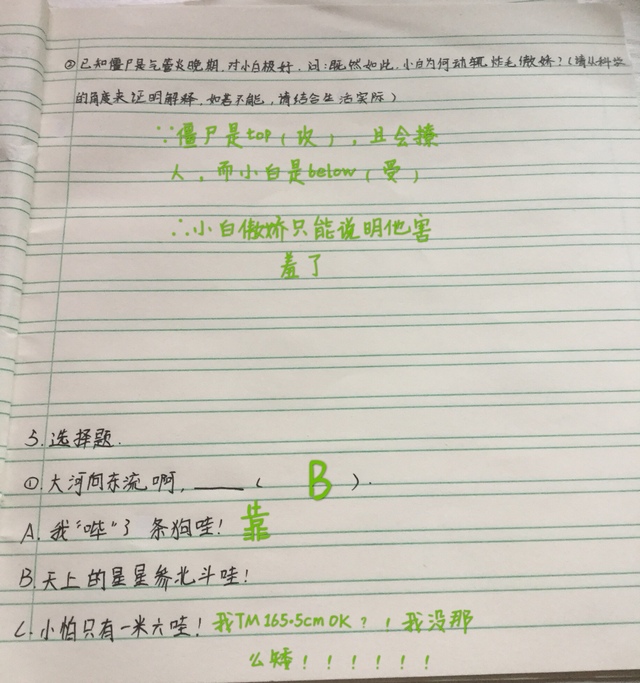 ②已知僵尸是气管炎晚期,对小白极好,问:既然如此,小白为何动辄炸毛傲娇?(请从科学
的角度来证明解释,如若不能,请结合生活实际)
∵僵尸是top(攻),且会撩
人,而小白是below(受)
∴小白傲娇只能说明他害
羞了
5.选择题.
①大河向东流啊,____( B ).
A.我“哔”了条狗哇! 靠
B.天上的星星参北斗哇!
C.小怕只有一米六哇!我TM165.5cm OK?!我没那
么矮!!!!!!